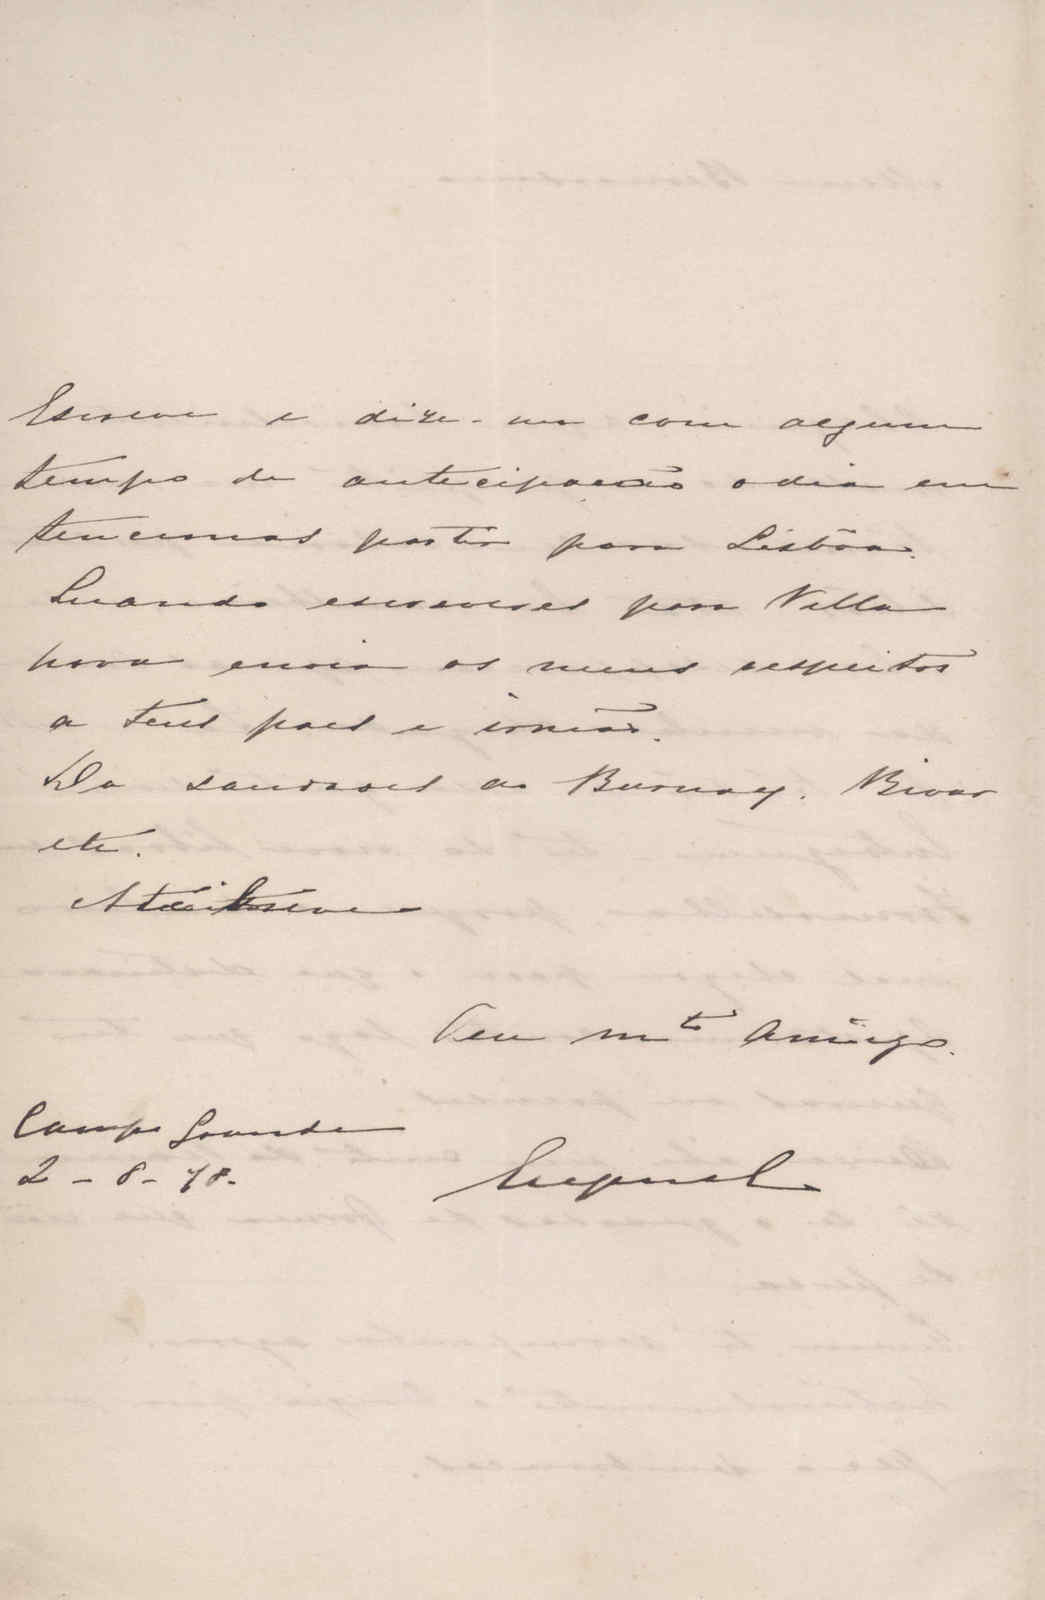 Escreve e dize-me com algum
tempo de antecipação o dia em
tencionas partir para Lisbôa.
Quando escreveres para Villa
nova envia os meus respeitos
a teus paes e irmão.
Da saudades ao Burnay. Bivar
etc.
Teu mto Amigo.
Campo Grande
2-8-78.